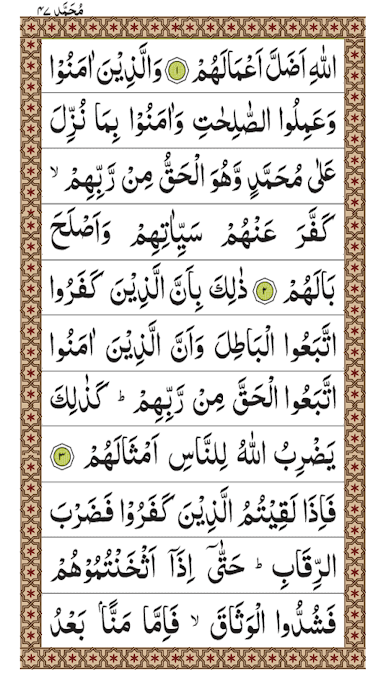 مُحَمَّد ٤٧
اللّٰهِ اَضَلَّ اَعْمَالَهُمْ ۝١ وَالَّذِيْنَ اٰمَنُوْا
وَعَمِلُوا الصّٰلِحٰتِ وَاٰمَنُوْا بِمَا نُزِّلَ
عَلٰى مُحَمَّدٍ وَّهُوَ الْحَقُّ مِنْ رَّبِّهِمْ ۙ
كَفَّرَ عَنْهُمْ سَيِّاٰتِهِمْ وَاَصْلَحَ
بَالَهُمْ ۝٢ ذٰلِكَ بِاَنَّ الَّذِيْنَ كَفَرُوا
اتَّبَعُوا الْبَاطِلَ وَاَنَّ الَّذِيْنَ اٰمَنُوا
اتَّبَعُوا الْحَقَّ مِنْ رَّبِّهِمْ ؕ كَذٰلِكَ
يَضْرِبُ اللّٰهُ لِلنَّاسِ اَمْثَالَهُمْ ۝٣
فَاِذَا لَقِيْتُمُ الَّذِيْنَ كَفَرُوْا فَضَرْبَ
الرِّقَابِ ؕ حَتّٰۤى اِذَاۤ اَثْخَنْتُمُوْهُمْ
فَشُدُّوا الْوَثَاقَ ۙ فَاِمَّا مَنًّاۢ بَعْدُ